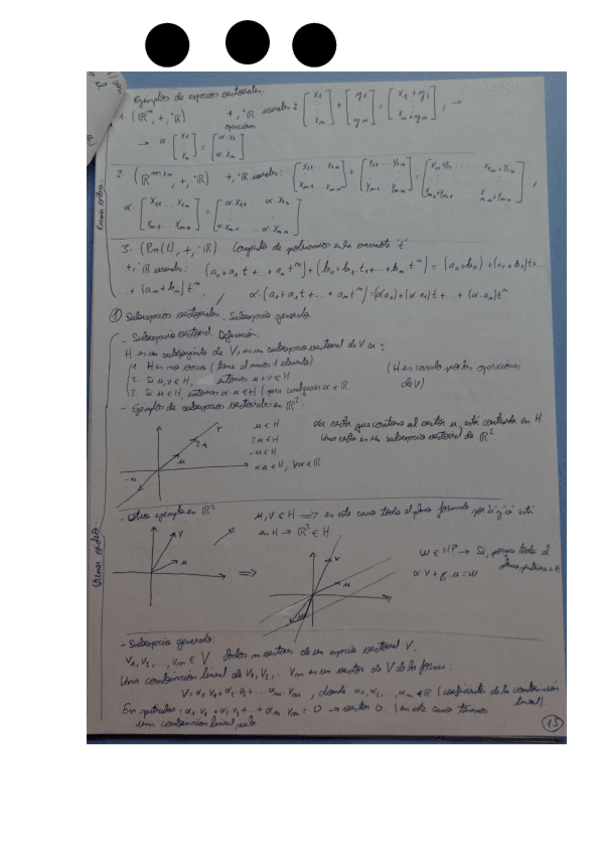 Ejemplos de espacios vectoriales.
1. (ℝⁿ, +, ·ℝ) +, ·ℝ usuales: [x₁ ⋮ xₙ] + [y₁ ⋮ yₙ] = [x₁+y₁ ⋮ xₙ+yₙ], →
operaciones
→ α·[x₁ ⋮ xₙ] = [α·x₁ ⋮ α·xₙ]
2. (ℝᵐˣⁿ, +, ·ℝ) +, ·ℝ usuales: [x₁₁ … x₁ₙ ⋮ xₘ₁ … xₘₙ] + [y₁₁ … y₁ₙ ⋮ yₘ₁ … yₘₙ] = [x₁₁+y₁₁ … x₁ₙ+y₁ₙ ⋮ xₘ₁+yₘ₁ … xₘₙ+yₘₙ],
α·[x₁₁ … x₁ₙ ⋮ xₘ₁ … xₘₙ] = [α·x₁₁ … α·x₁ₙ ⋮ α·xₘ₁ … α·xₘₙ]
3. (Pₙ(t), +, ·ℝ) Conjunto de polinomios en la variable "t"
+, ·ℝ usuales: (a₀+a₁t+…+aₙtⁿ)+(b₀+b₁t+…+bₙtⁿ) = (a₀+b₀)+(a₁+b₁)t+…
+ (aₙ+bₙ)tⁿ, α·(a₀+a₁t+…+aₙtⁿ)=(αa₀)+(α·a₁)t+…+(α·aₙ)tⁿ
① Subespacios vectoriales. Subespacio generado.
- Subespacio vectorial. Definición.
H es un subconjunto de V, es un subespacio vectorial de V si:
1. H es no vacío (tiene al menos 1 elemento)
2. Si u,v∈H, entonces u+v∈H
3. Si u∈H, entonces α·u∈H (para cualquier α∈ℝ
(H es cerrado por las operaciones
de V)
- Ejemplos de subespacios vectoriales en ℝ²:
r
2u
u
-u
u∈H
2u∈H
-u∈H
αu∈H, ∀α∈ℝ
La recta que contiene al vector u, está contenida en H
Una recta es un subespacio vectorial de ℝ²
- Otro ejemplo en ℝ²
v
u
u,v∈H ⟹ en este caso todo el plano formado por "u" y "v" está
en H → ℝ²∈H
⟹
v
u
w∈H? → Sí, porque todo el
plano pertenece a H
α·v+β·u=w
- Subespacio generado.
v₁,v₂,…,vₙ∈V dados n vectores de un espacio vectorial V.
Una combinación lineal de v₁,v₂,…vₙ es un vector de V de la forma:
V=α₁·v₁+α₂·v₂+…αₙ·vₙ, donde α₁,α₂,…,αₙ∈ℝ (coeficientes de la combinación
lineal)
En particular: α₁·v₁+α₂·v₂+…+αₙ·vₙ=0 → vector 0. (en este caso tenemos
una combinación lineal nula
15